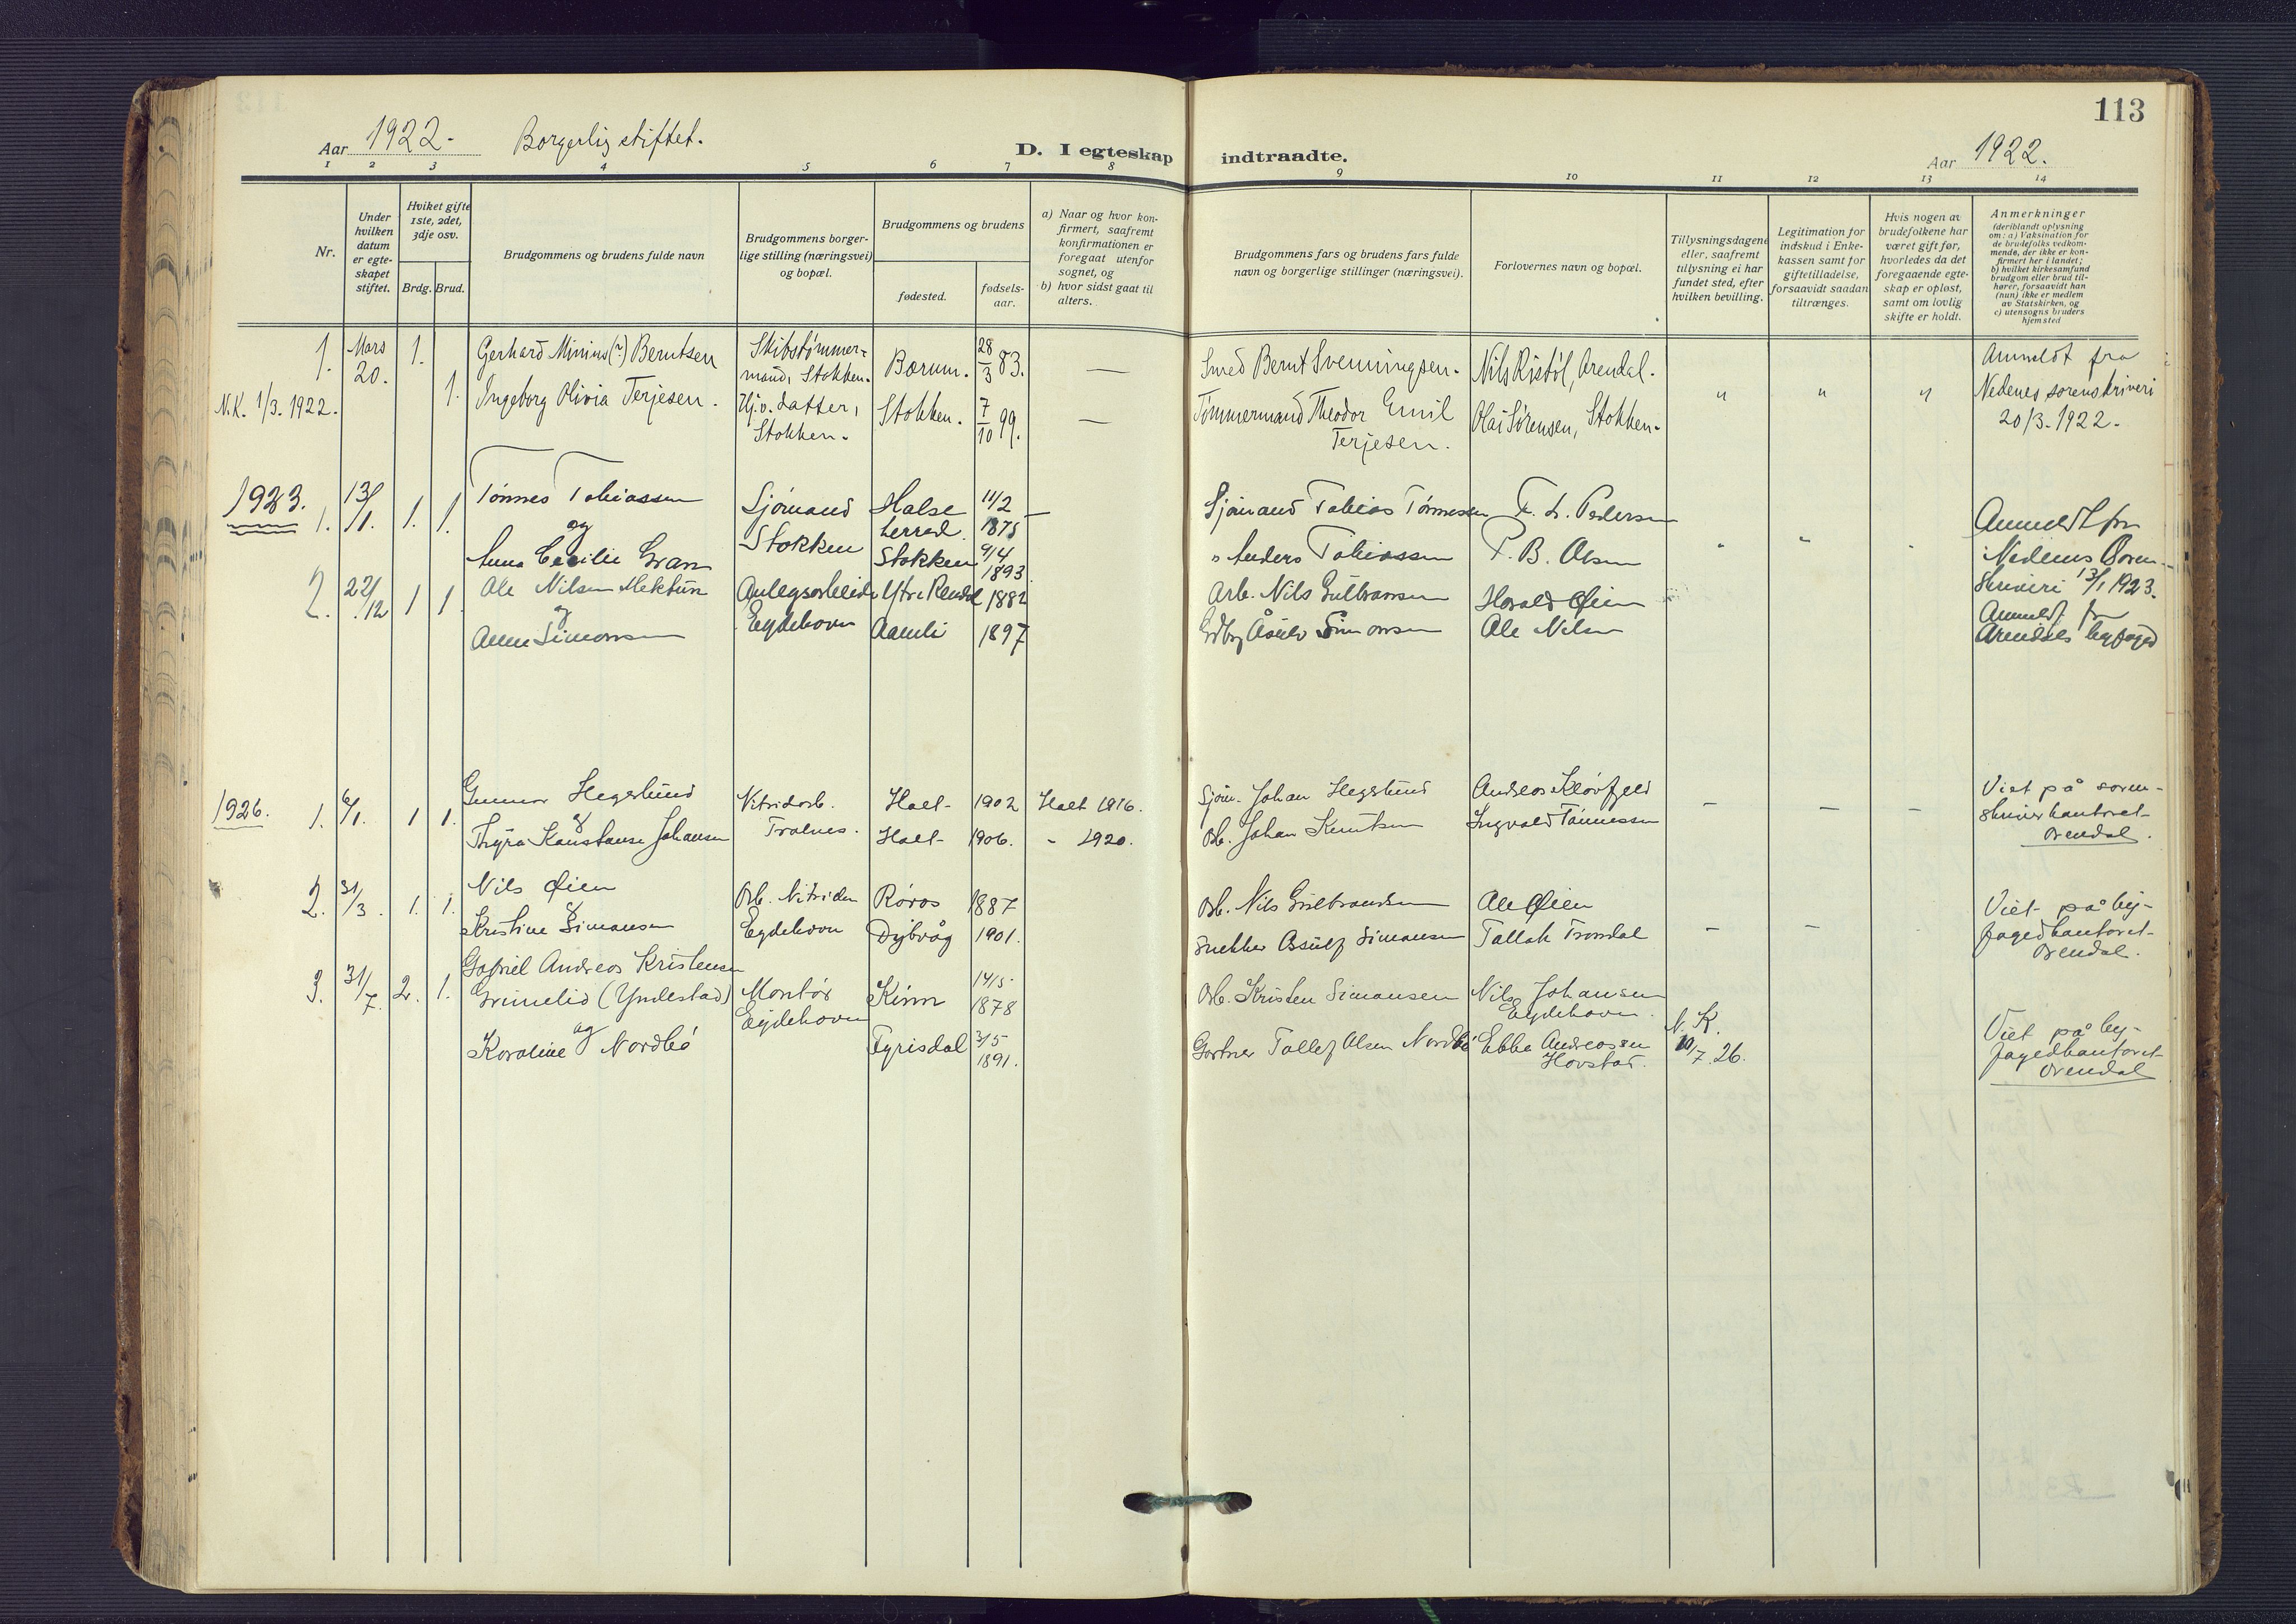 113
Aar 1922. Borgerlig stiftet. D. I egteskap indtraadte. Aar 1922.
1 2 3 4 5 6 7 8 9 10 11 12 13 14
Nr.
Under hvilken datum er egteskapet stiftet.
Hviket gifte 1ste, 2det, 3dje osv.
Brdg. Brud.
Brudgommens og brudens fulde navn
Brudgommens borgerlige stilling (næringsvei) og bopæl.
Brudgommens og brudens
fødested.
fødselsaar.
a) Naar og hvor konfirmert, saafremt konfirmationen er foregaat utenfor sognet, og
b) hvor sidst gaat til alters.
Brudgommens fars og brudens fars fulde navn og borgerlige stillinger (næringsvei).
Forlovernes navn og bopæl.
Tillysningsdagene eller, saafremt tillysning ei har fundet sted, efter hvilken bevilling.
Legitimation for indskud i Enkekassen samt for giftetilladelse, forsaavidt saadan tiltrænges.
Hvis nogen av brudefolkene har været gift før, hvorledes da det foregaaende egteskap er opløst, samt om lovlig skifte er holdt.
Anmerkninger (deriblandt oplysning om: a) Vaksination for de brudefolks vedkommende, der ikke er konfirmert her i landet; b) hvilket kirkesamfund brudgom eller brud tilhører, forsaavidt han (hun) ikke er medlem av Statskirken, og c) utensogns bruders hjemsted
1. Mars 20. 1. Gerhard Minius (?) Berntsen Skibstømmermand, Stokken. Bærum. 28/3 83. — Smed Bernt Svenningsen. Nils Ristøl, Arendal. Anmeldt fra
N.K. 1/3. 1922. 1. Ingeborg Olivia Terjesen. Hj.v. datter, Stokken. Stokken. 7/10 99. — Tømmermand Theodor Emil Terjesen. Olai Sørensen, Stokken. " " " Nedenes sorenskriveri 20/3. 1922.
1923. 1. 13/1. 1. 1. Tønnes Tobiassen Sjømand Halse herred. 11/2 1875 — Sjømand Tobias Tønnessen F. L. Pedersen Anmeldt fra
og
Anna Cecilie Gran Stokken Stokken 9/4 1893 " Anders Tobiassen P. B. Olsen " " " Nedenes Sorenskriveri 13/1 1923.
2. 22/12 1 1. Ole Nilsen Mektün Anlegsarbeide Ytre Rendal 1882 Arb. Nils Gulbransen Harald Øien Anmeldt fra
og
Anne Simonsen Eydehavn Aamli 1897 Gdbr Åsulv Simonsen Ole Nilsen Arendals byfoged
1926. 1. 6/1. 1 1. Gunnar Hegglund Nitridarb. Holt 1902 Holt 1916. Sjøm. Johan Hegglund Andreas Kløvfjeld — — — Viet på soren-
&
Thyra Konstanse Johansen Tralnes. Holt 1906. " 1920. Arb. Johan Knutsen Ingvald Tønnessen skriverkontoret Arendal.
2. 31/3. 1. 1. Nils Øien Arb. Nitriden Røros 1887 Arb. Nils Gulbrandsen Ole Øien Viet på by-
&
Kristine Simonsen Eydehavn Dybvåg 1901. Snekker Assulf Simonsen Tallak Trondal — — fogedkontoret Arendal.
3. 31/7. 2. 1. Gabriel Andreas Kristensen
Grimelid (Yndestad) Montør Eydehavn Kinn 14/5 1878 Arb. Kristen Simonsen Nils Johansen Eydehavn. N. K. 10/7. 26. Viet på by-
og
Karoline Nordbø Fyrisdal 3/5 1891. Gartner Tallef Olsen Nordbø Ebbe Andreassen Hovstad. fogedkontoret Arendal